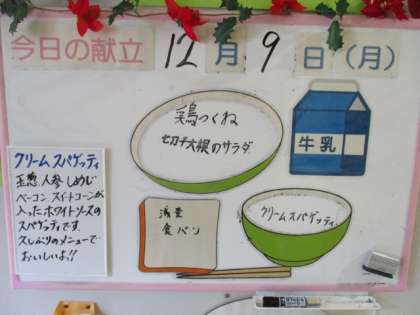 今日の献立 12月9日(月)
鶏つくね
切干大根のサラダ
牛乳
クリームスパゲッティ
玉葱、人参、しめじ
ベーコン、スイートコーンが
入ったホワイトソースの
スパゲッティです。
久しぶりのメニューで
おいしいよ!!
減量
食パン
クリームスパゲッティ